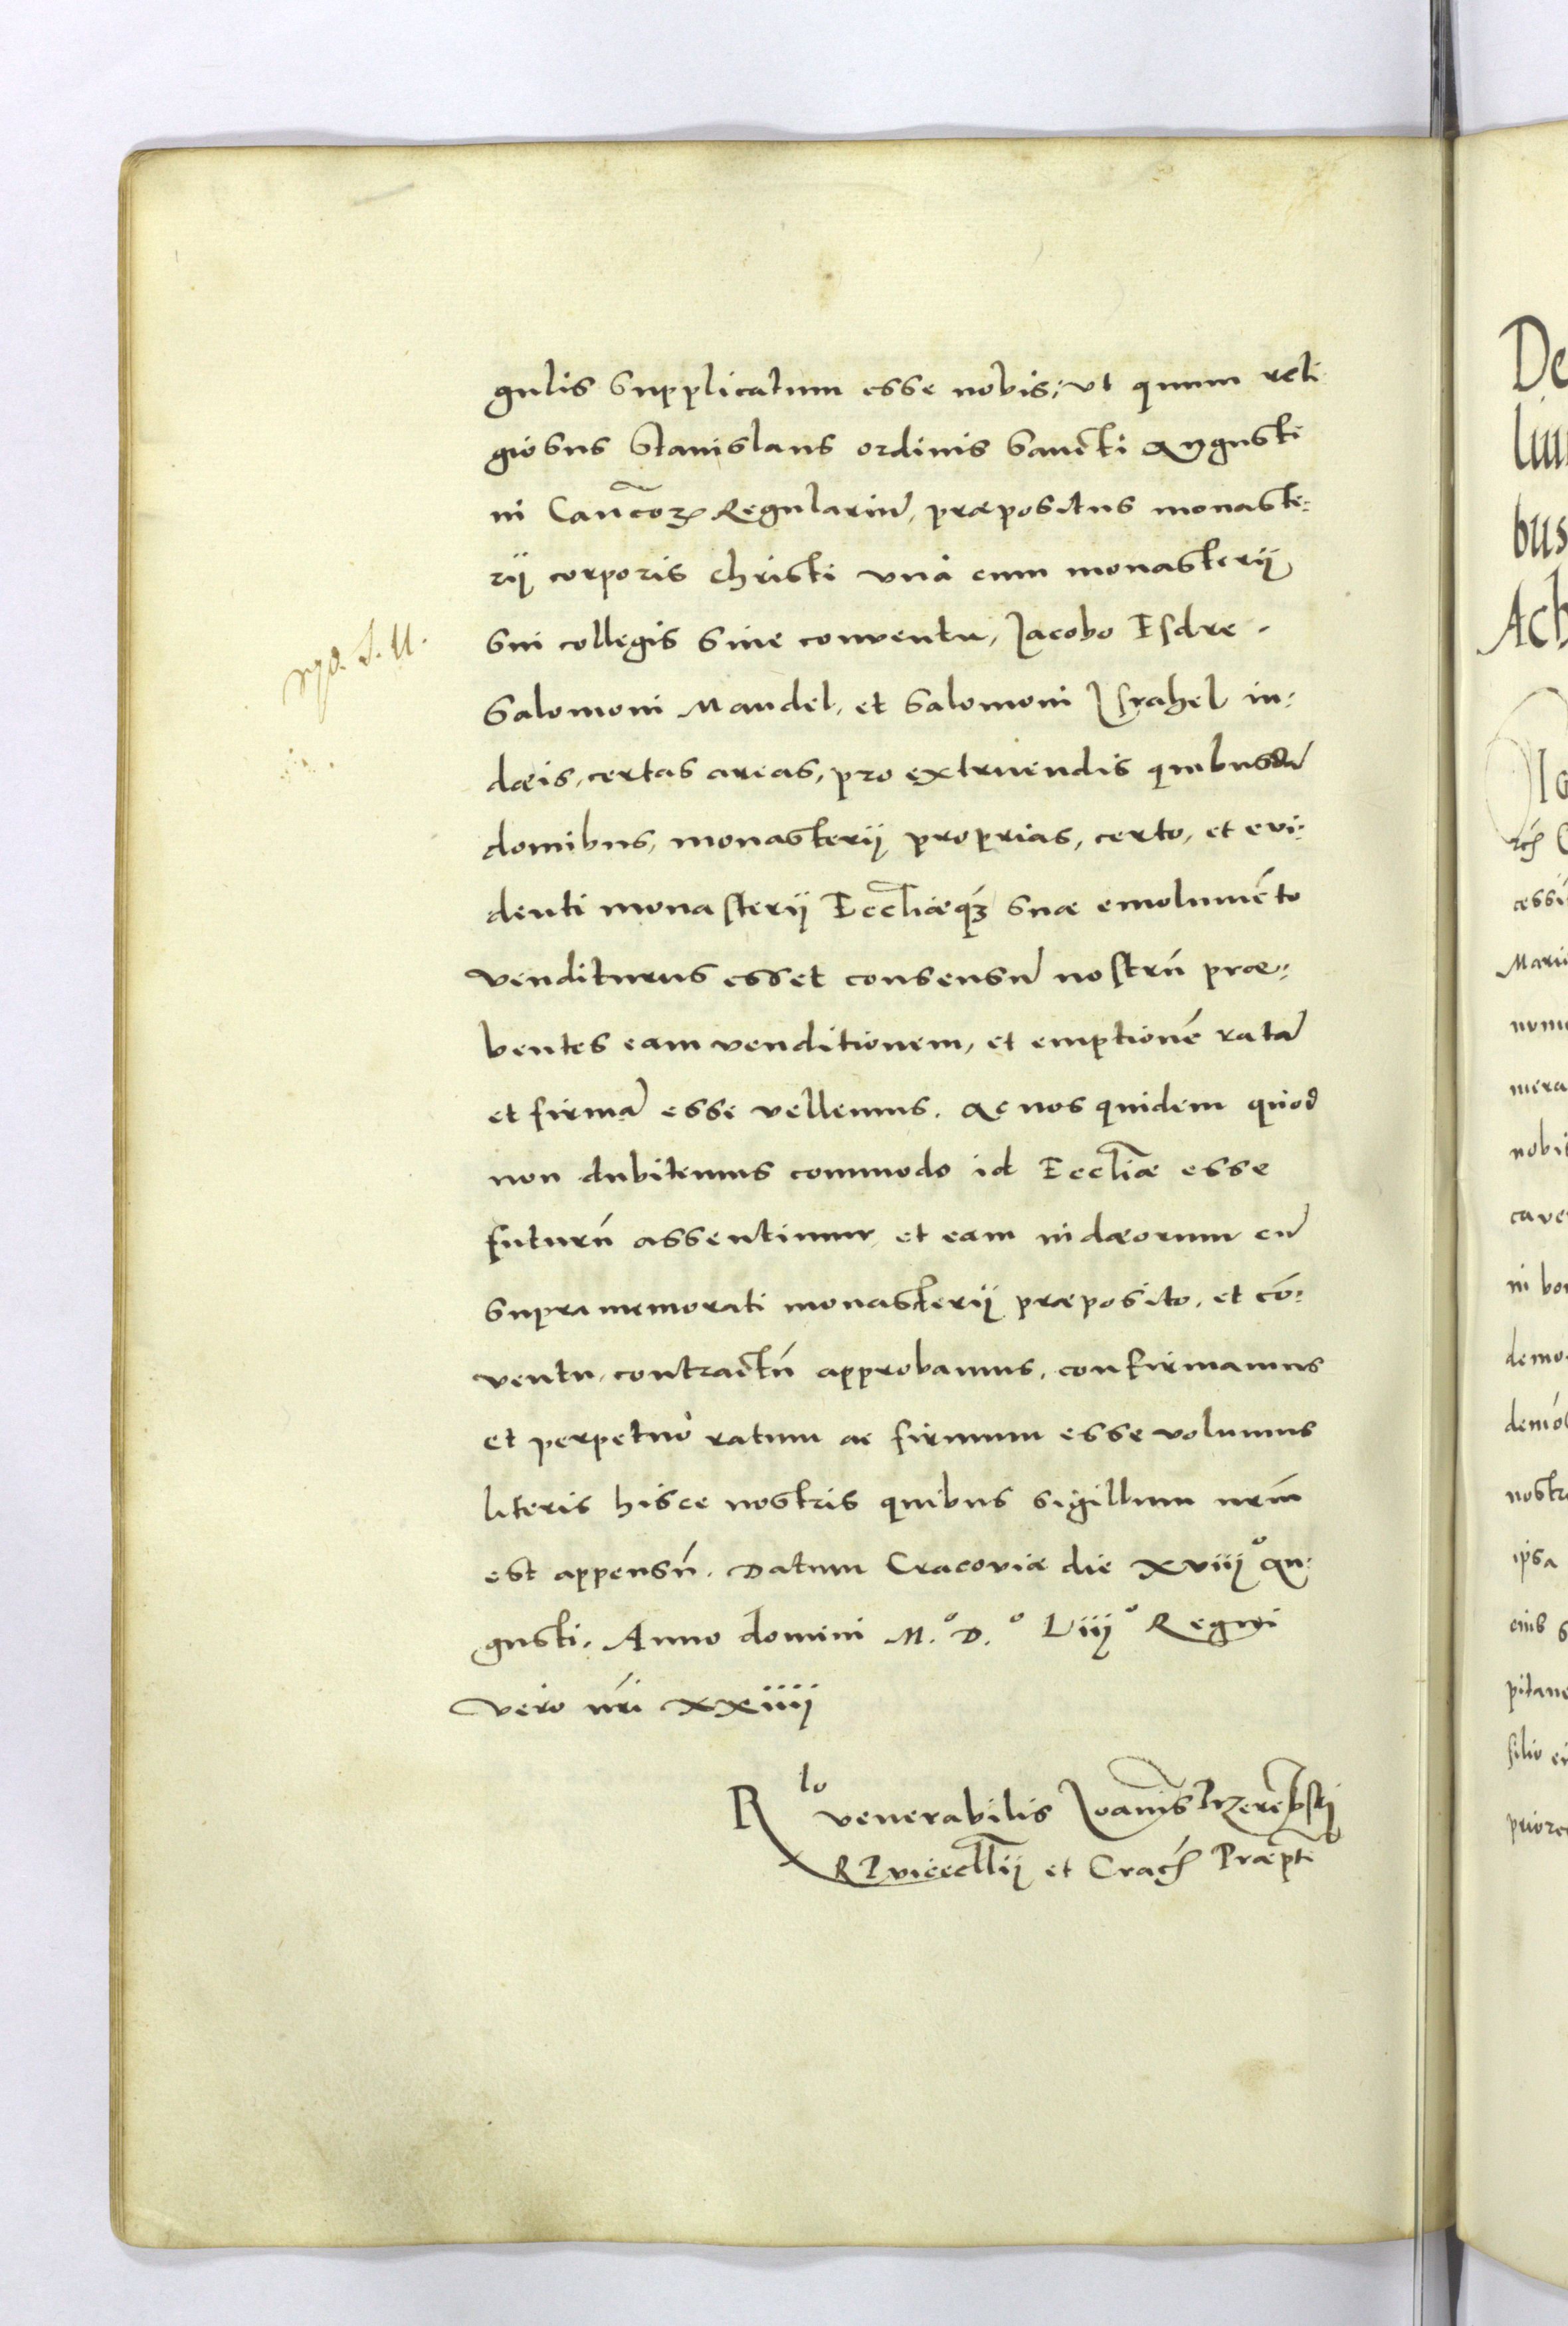 gulis supplicatum esse nobis, vt quum reli
giosus Stanislaus ordinis Sancti Augusti
ni Canc̃oꝝ Regulariũ, præpositus monaste:
rij corporis Christi vnà cum monasterij
sui collegis siue conventu, Jacobo Esdre.
Salomoni Mandel, et Salomoni Israhel iu:
dæis, certas areas, pro extruendis quibusdã
domibus, monasterij proprias, certo, et evi:
denti monasterij Eccl̃iæq́ꝫ suæ emolumẽto
venditurus esset consensũ nostrũ præ:
bentes eam venditionem, et emptionẽ ratã
et firmã esse vellemus. Ac nos quidem quod
non dubitemus commodo id Eccl̃iæ esse
futurũ assentimur, et eam iudæorum cũ
supra memorati monasterij præposito, et cõ:
ventu, contractũ approbamus, confirmamus
et perpetuò ratum ac firmum esse volumus
literis hisce nostris quibus sigillum nr̃m
est appensũ. Datum Cracoviæ die xviij° Au:
gusti, Anno domini M.° D.° Liij° Regni
vero nr̃i xxiiij
R lo venerabilis Joannis Przerẽbskj
R P vicecll̃ij et Crac̃ Præpti
De
lium
bus
Ach